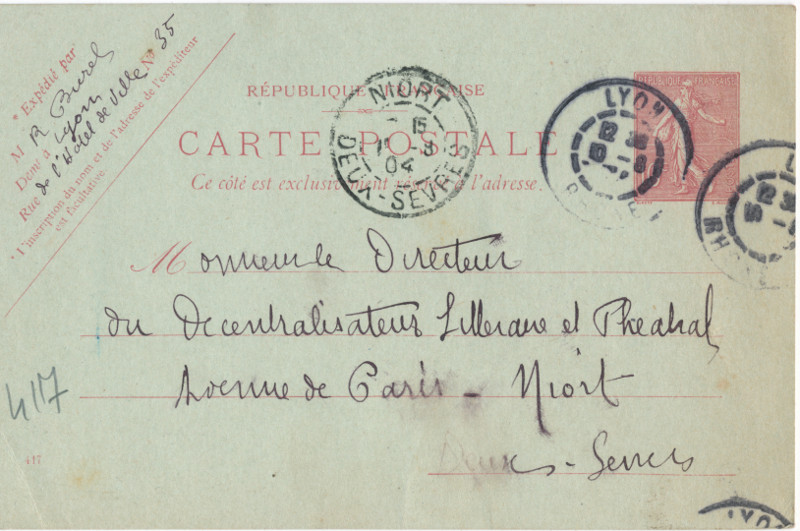 * Expédié par
M R Burel
Demt à Lyon
Rue de l'Hotel de Ville No 35
* L'inscription du nom et de l'adresse de l'expéditeur
est facultative.
RÉPUBLIQUE FRANÇAISE
CARTE POSTALE
Ce côté est exclusivement réservé à l'adresse.
NIORT
04
DEUX-SEVRES
REPUBLIQUE FRANÇAISE
LYON
RHONE
L
RHONE
Monsieur le Directeur
du Decentralisateur Litteraire et Theatral
Avenue de Paris - Niort
Deux-Sevres
4117
417
LYON